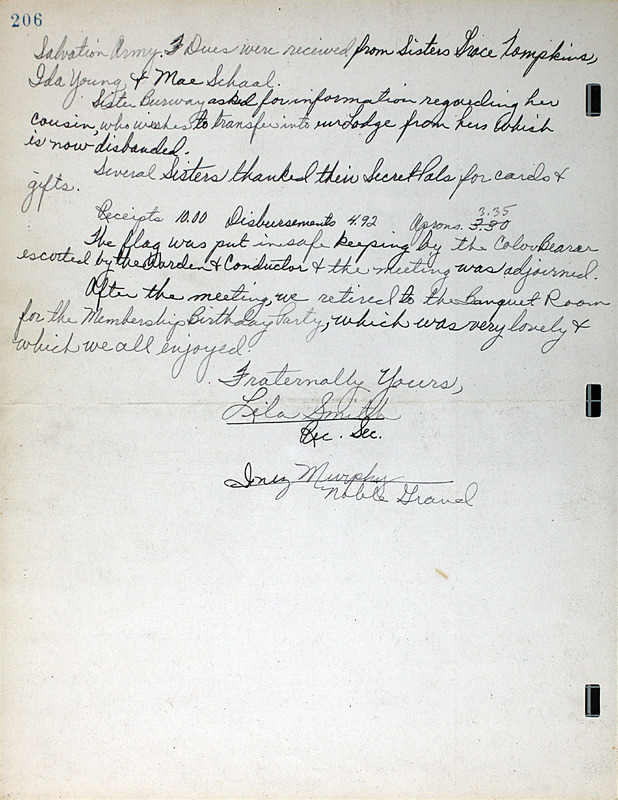 206
Salvation Army. Dues were received from Sisters Grace Tompkins,
Ida Young & Mae Schaal.
Sister Burway asked for information regarding her
cousin, who wishes to transfer into our Lodge from hers which
is now disbanded.
Several Sisters thanked their Secret Pals for cards &
gifts.
3.35
Receipts 10.00 Disbursements 4.92 Aprons 3.30
The flag was put in safe keeping by the Color Bearer
escorted by the Warden & Conductor & the meeting was adjourned.
After the meeting, we retired to the Banquet Room
for the Membership Birthday Party, which was very lovely &
which we all enjoyed.
Fraternally Yours,
Lila Smith
Rec. Sec.
Inez Murphy
Noble Grand